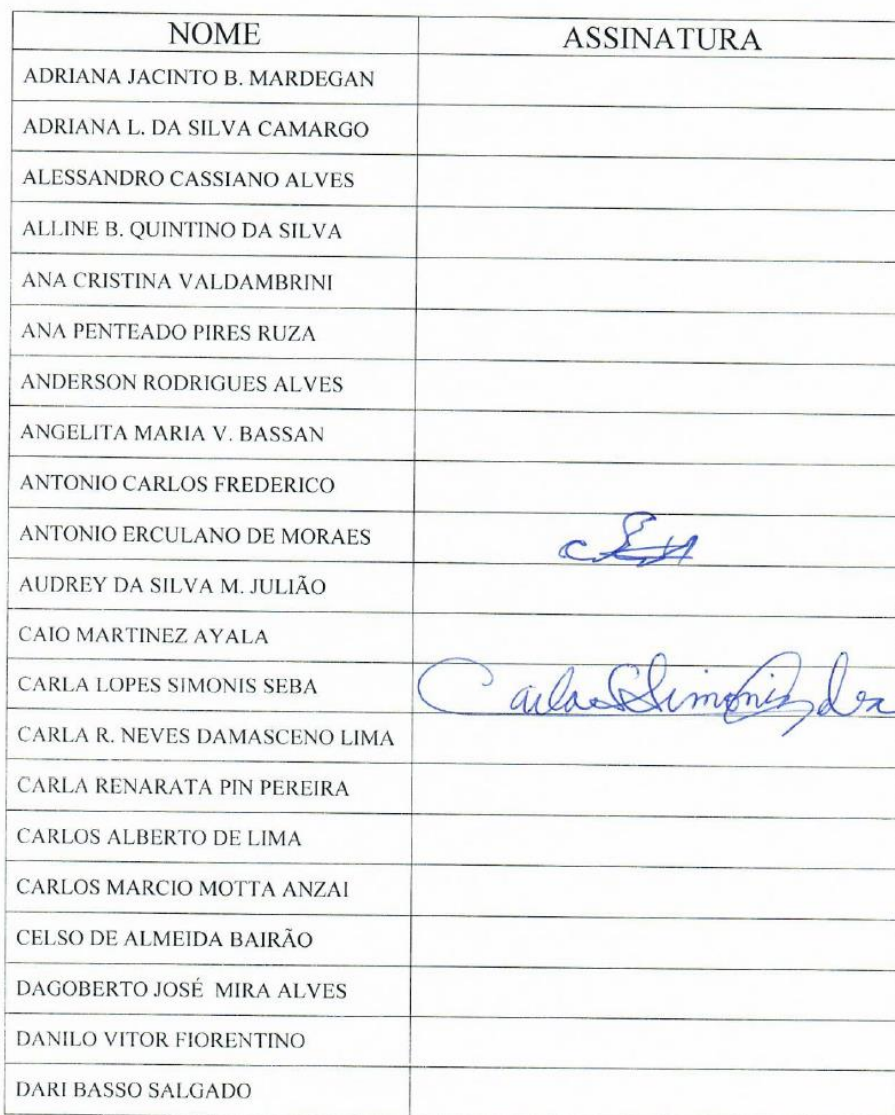 NOME ASSINATURA
ADRIANA JACINTO B. MARDEGAN
ADRIANA L. DA SILVA CAMARGO
ALESSANDRO CASSIANO ALVES
ALLINE B. QUINTINO DA SILVA
ANA CRISTINA VALDAMBRINI
ANA PENTEADO PIRES RUZA
ANDERSON RODRIGUES ALVES
ANGELITA MARIA V. BASSAN
ANTONIO CARLOS FREDERICO
ANTONIO ERCULANO DE MORAES
AUDREY DA SILVA M. JULIÃO
CAIO MARTINEZ AYALA
CARLA LOPES SIMONIS SEBA Carla Simonis
CARLA R. NEVES DAMASCENO LIMA
CARLA RENARATA PIN PEREIRA
CARLOS ALBERTO DE LIMA
CARLOS MARCIO MOTTA ANZAI
CELSO DE ALMEIDA BAIRÃO
DAGOBERTO JOSÉ MIRA ALVES
DANILO VITOR FIORENTINO
DARI BASSO SALGADO